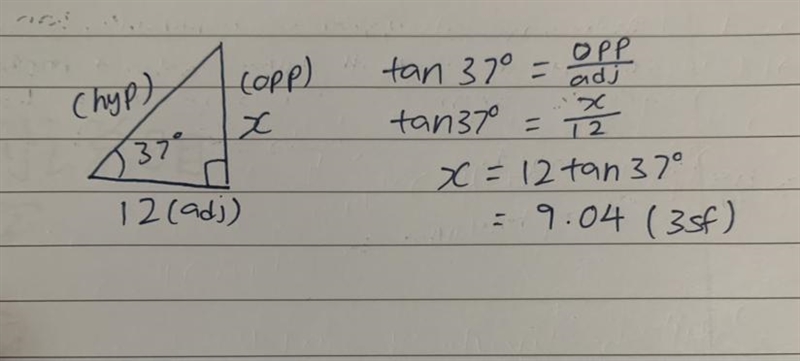 (hyp)
(opp)
x
37°
12 (adj)
tan 37° = opp/adj
tan37° = x/12
x = 12 tan 37°
= 9.04 (3sf)